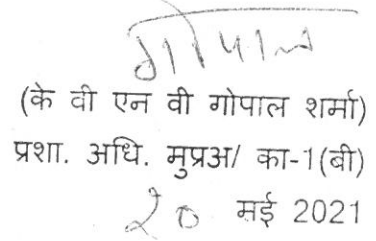 गोपाल
(के वी एन वी गोपाल शर्मा)
प्रशा. अधि. मुप्रअ/ का-1(बी)
20 मई 2021